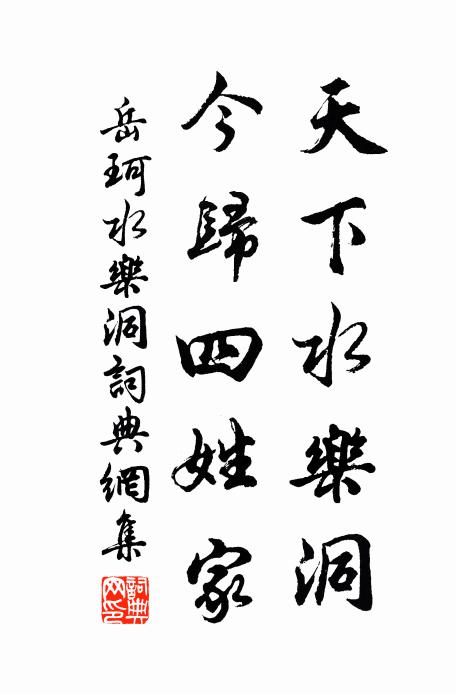 天下水樂洞
今歸四姓家
岳珂水樂洞詞典網集
詞典網印